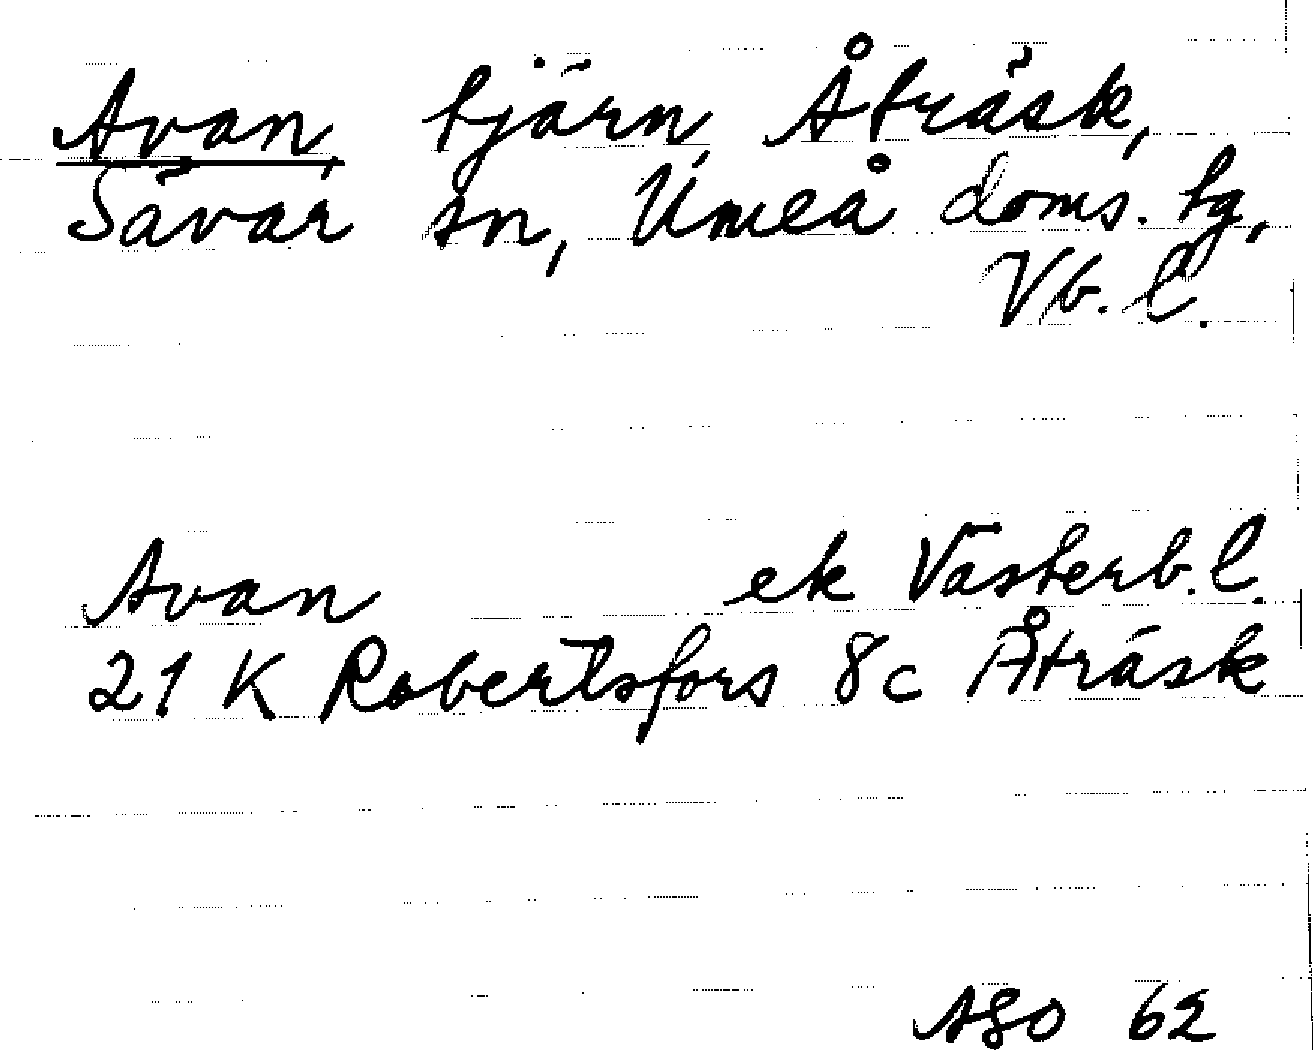 Avan, tjärn Åträsk,
Sävar sn, Umeå doms. tg,
Vb. l.
Avan ek Västerb. l.
21 K Robertsfors 8c Åträsk
ASO 62